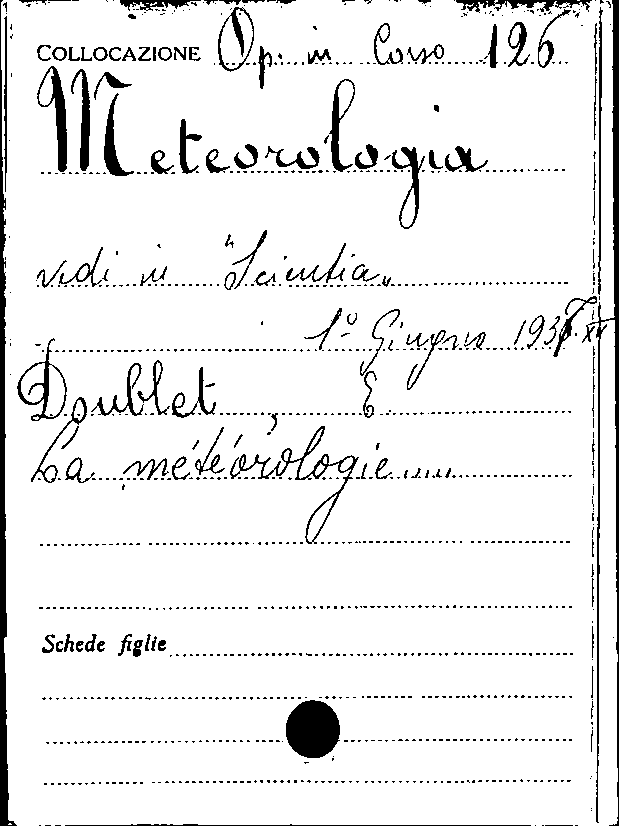 COLLOCAZIONE Op. in Corso 126
Meteorologia
vedi in "Scientia„
1º Giugno XV
Doublet, E.
La météorologie.....
Schede figlie